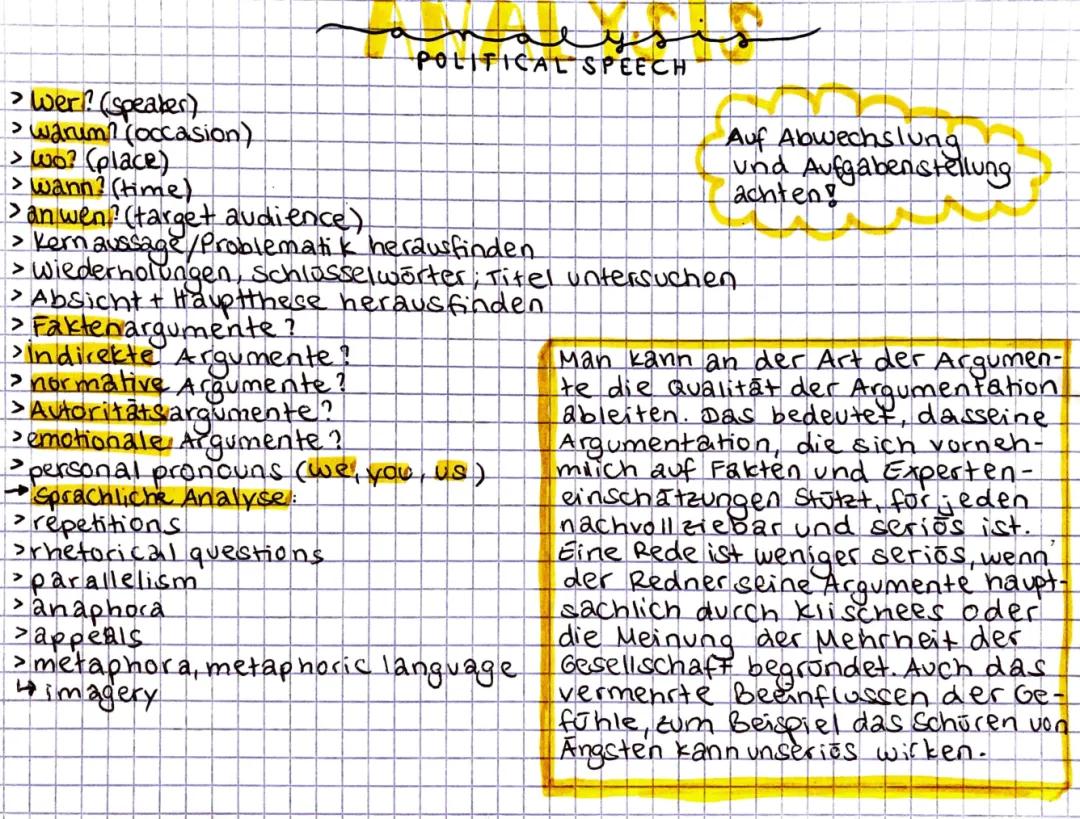 ANALYSIS
analysis
POLITICAL SPEECH
> wer? (speaker)
> warum? (occasion)
> wo? (place)
> wann? (time)
> an wen? (target audience)
> Kernaussage/Problematik herausfinden
> Wiederholungen, Schlüsselwörter; Titel untersuchen
> Absicht + Hauptthese herausfinden
> Faktenargumente?
> indirekte Argumente?
> normative Argumente?
> Autoritätsargumente?
> emotionale Argumente?
> personal pronouns (we, you, us)
→ Sprachliche Analyse:
> repetitions
> rhetorical questions
> parallelism
> anaphora
> appeals
> metaphora, metaphoric language
↳ imagery
Auf Abwechslung
und Aufgabenstellung
achten!
Man kann an der Art der Argumen-
te die Qualität der Argumentation
ableiten. Das bedeutet, dass eine
Argumentation, die sich vorneh-
mlich auf Fakten und Experten-
einschätzungen stützt, für jeden
nachvollziebar und seriös ist.
Eine Rede ist weniger seriös, wenn
der Redner seine Argumente haupt-
sächlich durch Klischees oder
die Meinung der Mehrheit der
Gesellschaft begründet. Auch das
vermehrte Beeinflussen der Ge-
fühle, zum Beispiel das Schüren von
Ängsten kann unseriös wirken.